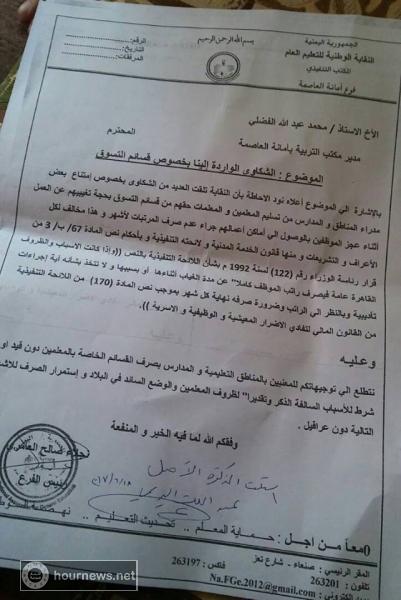 الجمهورية اليمنية
النقابة الوطنية للتعليم العام
المكتب التنفيذي
فرع أمانة العاصمة
بسم الله الرحمن الرحيم
الرقم:
التاريخ:
المرفقات:
الأخ الاستاذ / محمد عبد الله الفضلي
مدير مكتب التربية بأمانة العاصمة المحترم
الموضوع : الشكاوى الواردة إلينا بخصوص قسائم التسوق
بالإشارة الي الموضوع أعلاه نود الاحاطة بأن النقابة تلقت العديد من الشكاوى بخصوص إمتناع بعض
مدراء المناطق و المدارس من تسليم المعلمين و المعلمات حقهم من قسائم التسوق بحجة تغيبهم عن العمل
أثناء عجز الموظفين بالوصول الي أماكن أعمالهم جراء عدم صرف المرتبات لأشهر و هذا مخالف لكل
الأعراف و التشريعات و منها قانون الخدمة المدنية و لائحته التنفيذية و بأحكام نص المادة 67/ ب/ 3 من
قرار رئاسة الوزراء رقم (122) لسنة 1992 م بشأن اللائحة التنفيذية بالنص ((وإذا كانت الاسباب والظروف
القاهرة عامة فيصرف راتب الموظف كاملا" عن مدة الغياب أثناءها أو بسببها و لا تتخذ بشأنه أية إجراءات
تأديبية وبالنظر الي الراتب وضرورة صرفه نهاية كل شهر بموجب نص المادة (170) من اللائحة التنفيذية
من القانون المالي لتفادي الاضرار المعيشية و الوظيفية و الاسرية )).
وعليه
نتطلع الي توجيهاتكم للمعنيين بالمناطق التعليمية و المدارس بصرف القسائم الخاصة بالمعلمين دون قيد او
شرط للأسباب السالفة الذكر وتقديرا" لظروف المعلمين والوضع السائد في البلاد و إستمرار الصرف للأشهر
التالية دون عراقيل .
وفقكم الله لما فيه الخير و المنفعة
صالح
رئيس الفرع
استلمت المذكرة الأصل
معاً من اجل : حماية المعلم .. تحديث التعليم ..
المقر الرئيسي : صنعاء - شارع تعز
تلفون : 263201 فاكس : 263197
Na.FGe.2012@gmail.com
hournews.net